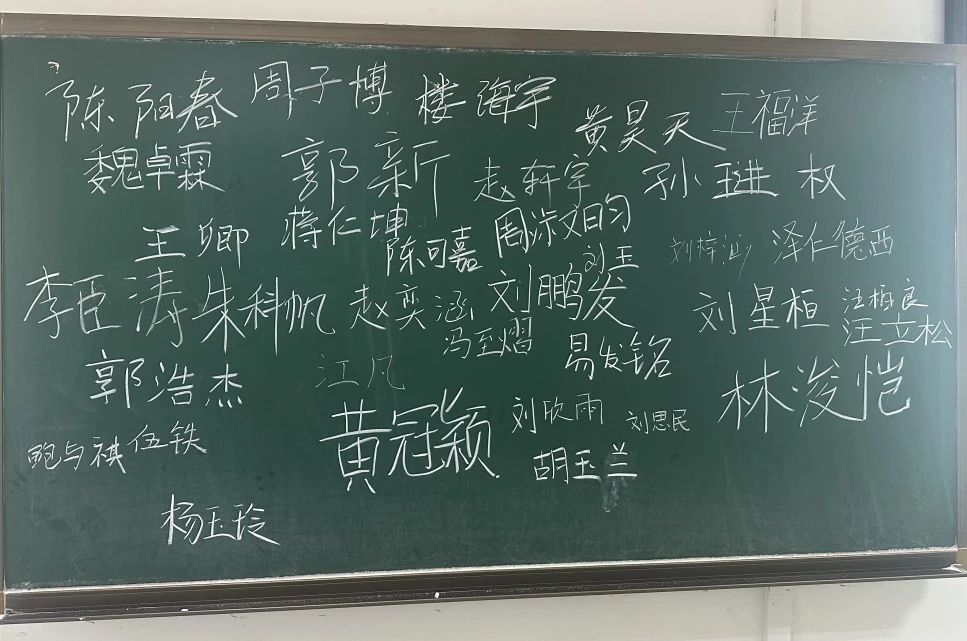 陈阳春 周子博 楼海宇 黄昊天 王福洋
魏卓霖 郭新 赵轩宇 孙琎权
王卿 蒋仁坤 陈可嘉 周淤文昀 刘玉 刘梓涵 泽仁德西
李臣涛 朱科帆 赵奕涵 刘鹏发 刘星桓 汪栢良
冯至熠 易发铭 汪立松
郭浩杰 江凡 林浚恺
黄冠颖 刘欣雨 刘思民
鲍与祺 伍铁 胡玉兰
杨玉玲